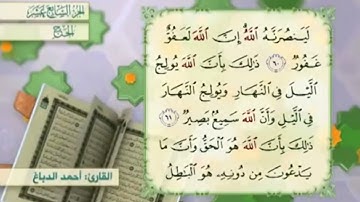 الجزء السابع عشر
الحج
لَيَنصُرَنَّهُ اللَّهُ إِنَّ اللَّهَ لَعَفُوٌّ
غَفُورٌ ٦٠ ذَٰلِكَ بِأَنَّ اللَّهَ يُولِجُ
الَّيْلَ فِي النَّهَارِ وَيُولِجُ النَّهَارَ
فِي الَّيْلِ وَأَنَّ اللَّهَ سَمِيعٌ بَصِيرٌ ٦١
ذَٰلِكَ بِأَنَّ اللَّهَ هُوَ الْحَقُّ وَأَنَّ مَا
يَدْعُونَ مِن دُونِهِ هُوَ الْبَٰطِلُ
القارئ: أحمد الدباغ